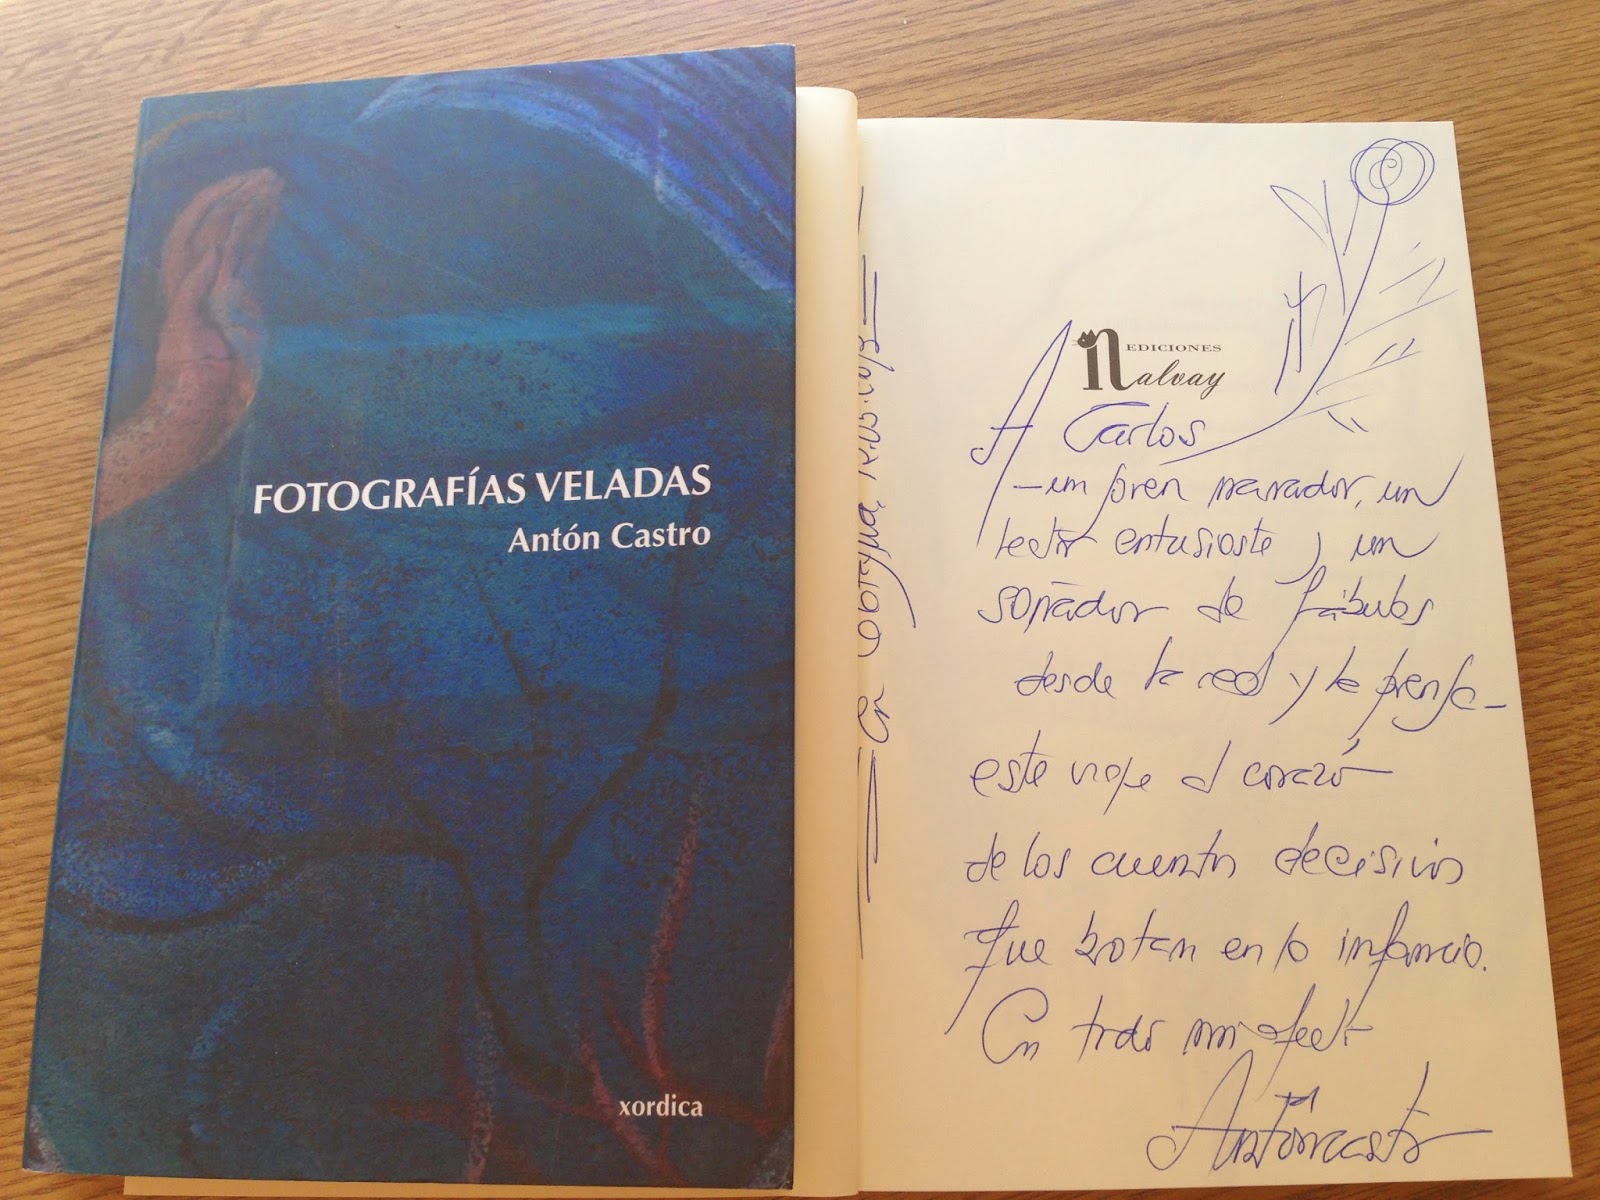 FOTOGRAFÍAS VELADAS
Antón Castro
xordica
EDICIONES
nalvay
A Carlos
–un gran narrador, un
lector entusiasta y un
soñador de fábulas
desde la red y la prensa–
este viaje al corazón
de los cuentos decisivos
que brotan en la infancia.
Con todo mi afecto
Antón Castro
En Coruña,